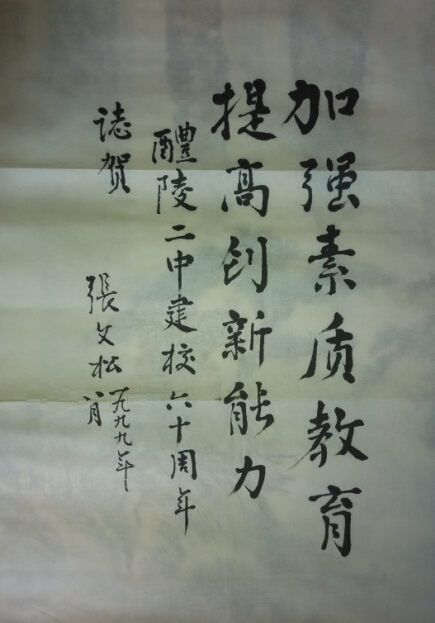 加强素质教育
提高创新能力
醴陵二中建校六十周年
誌贺
張文松
一九九九年
八月